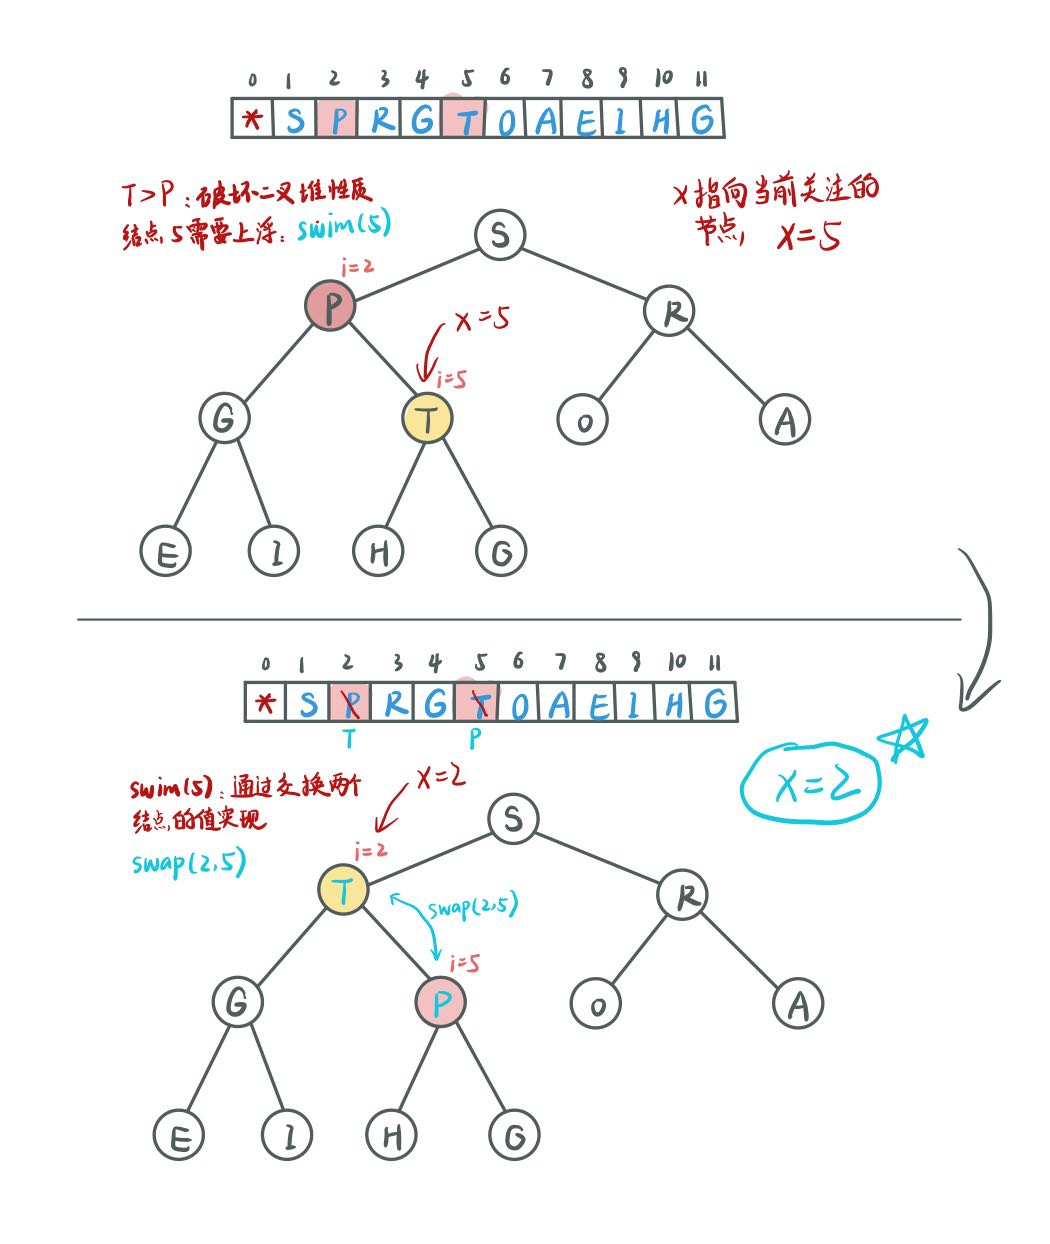 0 1 2 3 4 5 6 7 8 9 10 11
* S P R G T O A E I H G
T>P：破坏二叉堆性质
结点5需要上浮：swim(5)
x指向当前关注的
节点，x=5
S
i=2
P
R
x=5
i=5
G
T
O
A
E
I
H
G
0 1 2 3 4 5 6 7 8 9 10 11
* S P R G T O A E I H G
T
P
swim(5)：通过交换两个
结点的值实现
swap(2,5)
x=2
x=2
S
i=2
T
R
swap(2,5)
i=5
G
P
O
A
E
I
H
G